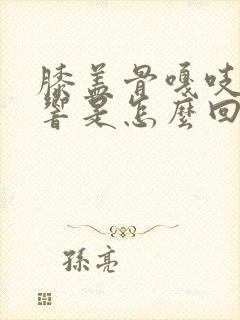 膝盖骨嘎吱
響是怎麼回
孫亮